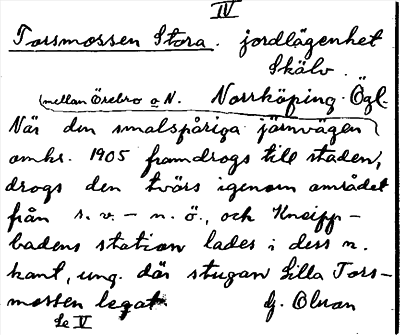 IV
Torsmossen Stora. jordlägenhet
Skälv.
(mellan Örebro o N. Norrköping Ögl.
När den smalspåriga järnvägen)
omkr. 1905 framdrogs till staden,
drogs den tvärs igenom området
från s.v. – n.ö., och Kneipp-
badens station lades i dess n.
kant, ung. där stugan Lilla Tors-
mossen legat.
Se V